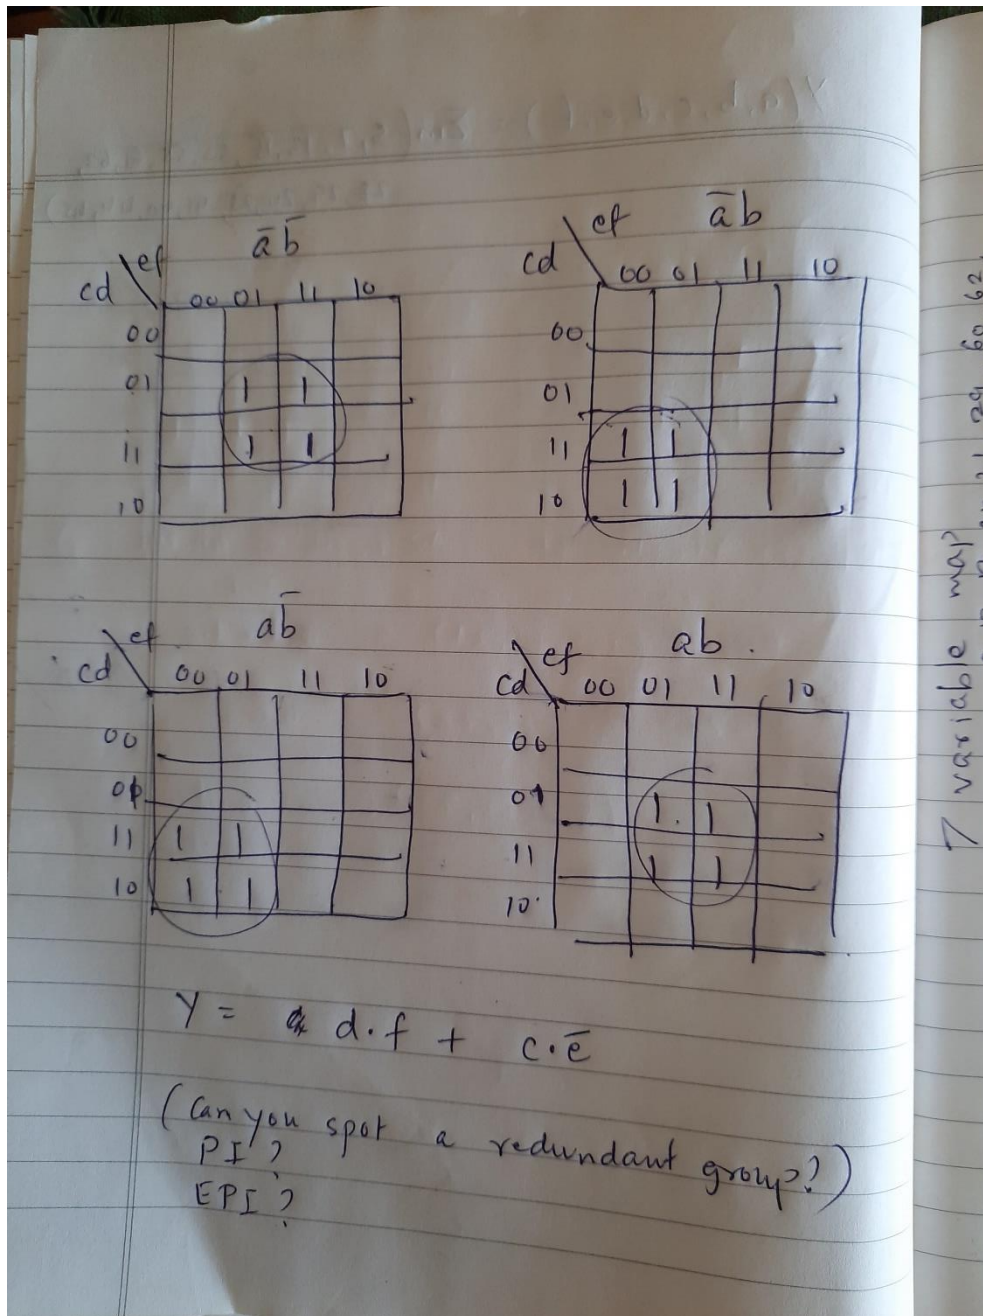 a̅ b̅
cd \ ef
00 01 11 10
00
01 1 1
11 1 1
10
a̅ b
cd \ ef
00 01 11 10
00
01
11 1 1
10 1 1
a b̅
cd \ ef
00 01 11 10
00
01
11 1 1
10 1 1
ab.
cd \ ef
00 01 11 10
00
01 1 1
11 1 1
10
Y = d·f + c·e̅
(Can you spot a redundant group?)
PI?
EPI?
7 variable map
29 60 62,